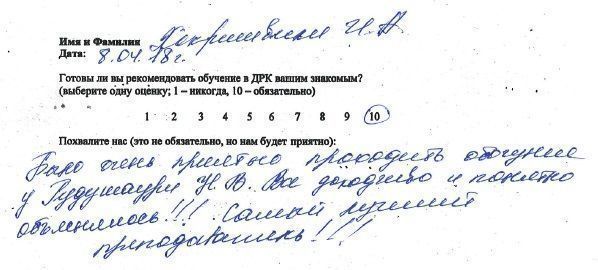 Имя и Фамилия И.А.
Дата: 8.04.18г.
Готовы ли вы рекомендовать обучение в ДРК вашим знакомым?
(выберите одну оценку; 1 – никогда, 10 – обязательно)
1 2 3 4 5 6 7 8 9 10
Похвалите нас (это не обязательно, но нам будет приятно):
Было очень приятно проходить обучение
у Гудушаури Н.В. Все доходчиво и понятно
объяснялось!!! Самый лучший
преподаватель!!!